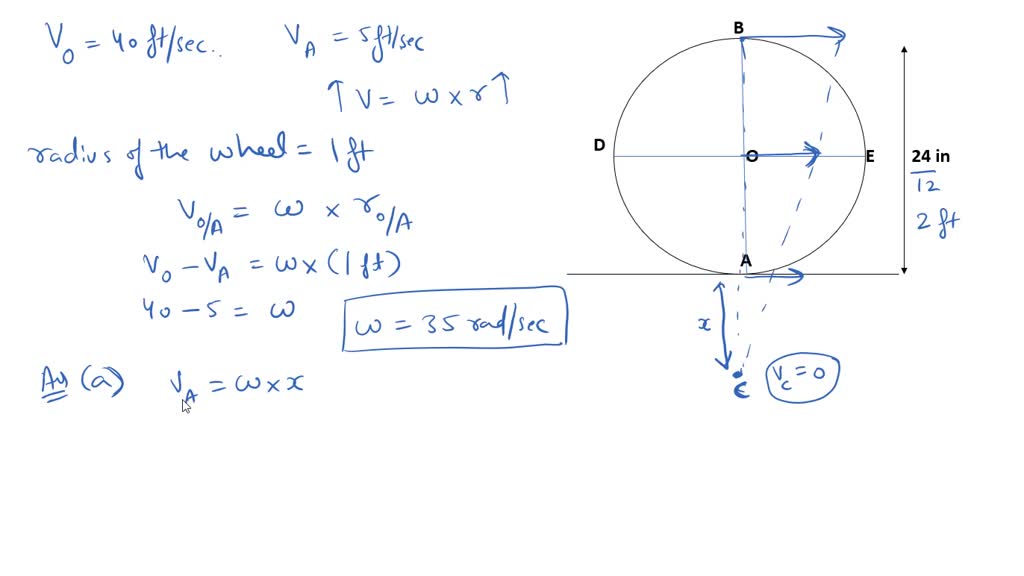 V_O = 40 ft/sec.. V_A = 5 ft/sec
↑ V = ω × r ↑
radius of the wheel = 1 ft
V_O/A = ω × r_O/A
V_O − V_A = ω × (1 ft)
40 − 5 = ω
ω = 35 rad/sec
Ans (a) V_A = ω × x
B
D
O
E
24 in
12
2 ft
A
x
C
V_C = 0